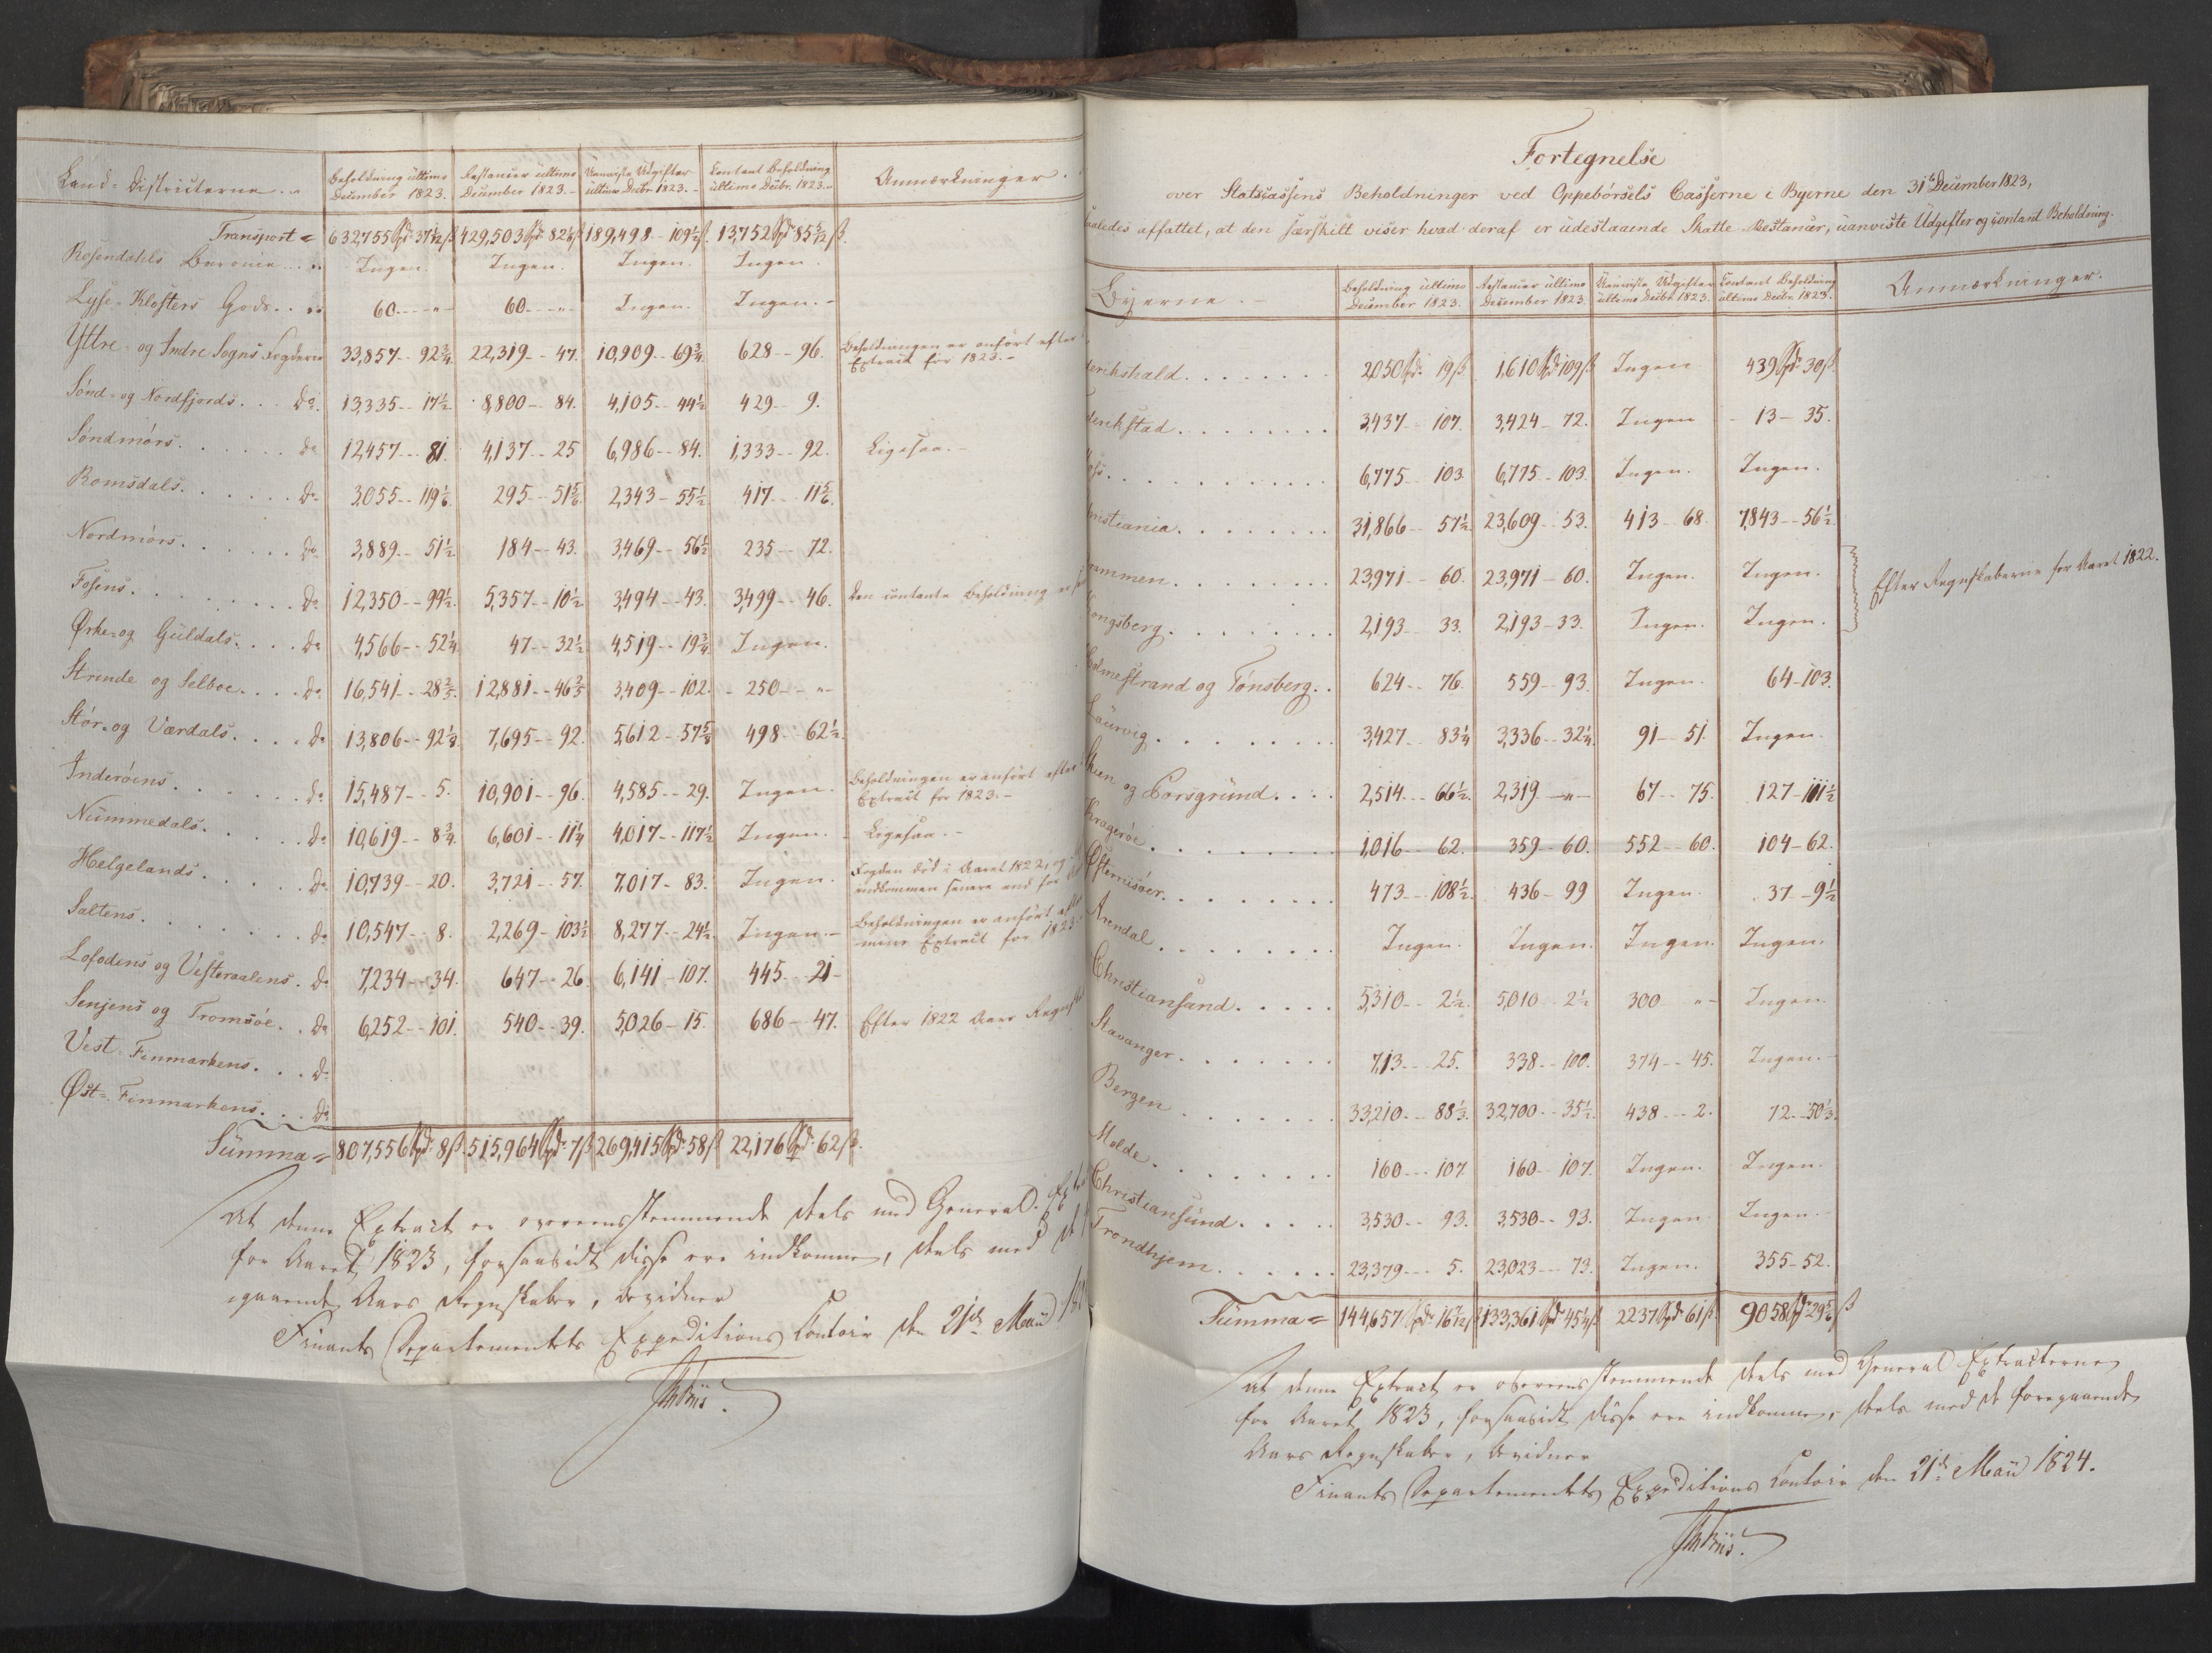 Land-Districterne
Beholdning ultimo December 1823.
Restancer ultimo December 1823.
Uanviste Udgifter ultimo Decbr. 1823.
Contant Beholdning ultimo Decbr. 1823.
Anmærkninger.
Transport = 632,755 Spd 37 1/12 ß 429,503 Spd 82 1/6 ß 189,498 - 109 1/2 ß 13,752 Spd 85 5/12 ß.
Rosendahls Baronie Ingen. Ingen. Ingen. Ingen.
Lyse-Klosters Gods 60 - " - 60 - " - Ingen. Ingen. -
Yttre- og Indre Sogns Fogderie 33,857 - 92 3/4. 22,319 - 47. 10,909 - 69 3/4 628 - 96. Beholdningen er anført efter
Extract for 1823. -
Sønd- og Nordfjords . . do. 13,335 - 17 1/2 8,800 - 84. 4,105 - 44 1/2 429 - 9.
Søndmørs . . do 12,457 - 81. 4,137 - 25 6,986 - 84. 1,333 - 92. Ligesaa. -
Romsdals . . do 3,055 - 119 1/6. 295 - 51 5/6 2,343 - 55 1/2 417 - 11 5/6.
Nordmørs . . do 3,889 - 51 1/2 184 - 43. 3,469 - 56 1/2 235 - 72.
Fosens . . do 12,350 - 99 1/2. 5,357 - 10 1/2 3,494 - 43. 3,499 - 46. Den contante Beholdning er
Ørke- og Guldals . . do 4,566 - 52 1/4 47 - 32 1/2 4,519 - 19 3/4 Ingen.
Strinde og Selboe . . do 16,541 - 28 2/5. 12,881 - 46 2/5 3,409 - 102. 250 - " -
Stør- og Værdals . . do 13,806 - 92 1/8. 7,695 - 92. 5,612 - 57 5/8 498 - 62 1/2.
Inderøens . . do 15,487 - 5. 10,901 - 96. 4,585 - 29. Ingen. Beholdningen er anført efter
Extract for 1823. -
Nummedals . . do 10,619 - 8 3/4. 6,601 - 11 1/4 4,017 - 117 1/2 Ingen. - Ligesaa. -
Helgelands . . do 10,739 - 20. 3,721 - 57. 7,017 - 83. Ingen. Fogden død i Aaret 1822, og
indkommen senere end for
Saltens . . do 10,547 - 8. 2,269 - 103 1/2 8,277 - 24 1/2. Ingen. - Beholdningen er anført efter
Extract for 1823.
Lofodens og Vesteraalens . do 7,234 - 34. 647 - 26. 6,141 - 107. 445 - 21 -
Senjens og Tromsöe . . do 6,252 - 101. 540 - 39. 5,026 - 15. 686 - 47. Efter 1822 Aars
Vest-Finmarkens . . do
Øst-Finmarkens . . do
Summa = 807,556 Spd 8 ß. 515,964 Spd 7 ß 269,415 Spd 58 ß 22,176 Spd 62 ß.
At denne Extract er overeensstemmende deels med General-
for Aaret 1823, forsaavidt disse ere indkomne, deels med de
gaaende Aars Regnskaber, bevidner
Finants Departementets Expeditions Contoir den 21de Maii
Fortegnelse
over Statscassens Beholdninger ved Oppebørsels Casserne i Byerne den 31te December 1823,
saaledes affattet, at den særskilt viser hvad deraf er udestaaende Skatte-Restancer, uanviste Udgifter og contant Beholdning.
Byerne. -
Beholdning ultimo December 1823.
Restancer ultimo December 1823.
Uanviste Udgifter ultimo Decbr. 1823.
Contant Beholdning ultimo Decbr. 1823.
Anmærkninger.
derikshald . . 2050 Spd 19 ß 1,610 Spd 109 ß Ingen 439 Spd 30 ß.
derikstad . . 3,437 - 107. 3,424 - 72. Ingen - 13 - 35.
oss . . 6,775 - 103 6,775 - 103. Ingen. Ingen.
ristiania . . 31,866 - 57 1/2 23,609 - 53. 413 - 68. 7,843 - 56 1/2.
rammen . . 23,971 - 60. 23,971 - 60. Ingen. Ingen.
Efter Regnskaberne for Aaret 1822.
Kongsberg . . 2,193 - 33. 2,193 - 33. Ingen. Ingen.
Holmestrand og Tønsberg . . 624 - 76. 559 - 93. Ingen. 64 - 103.
Laurvig . . 3,427 - 83 1/4 3,336 - 32 1/4. 91 - 51. Ingen.
Skien og Porsgrund . . 2,514 - 66 1/2. 2,319 - " - 67 - 75. 127 - 111 1/2
Kragerøe . . 1,016 - 62. 359 - 60. 552 - 60. 104 - 62.
Østerrisøer . . 473 - 108 1/2. 436 - 99 Ingen. 37 - 9 1/2
Arendal . . Ingen. Ingen. Ingen. Ingen.
Christiansand . . 5,310 - 2 1/2. 5,010 - 2 1/2 300 - " - Ingen.
Stavanger . . 713 - 25. 338 - 100. 374 - 45. Ingen. -
Bergen . . 33,210 - 88 1/3. 32,700 - 35 1/2. 438 - 2. 72 - 50 1/3.
Molde . . 160 - 107. 160 - 107. Ingen. Ingen.
Christiansund . . 3,530 - 93. 3,530 - 93. Ingen. Ingen. -
Trondhjem . . 23,379 - 5. 23,023 - 73. Ingen. 355 - 52.
Summa = 144,657 Spd 16 7/12 ß 133,361 Spd 45 1/4 ß 2237 Spd 61 ß 9058 Spd 29 5/6 ß
At denne Extract er overeensstemmende deels med General Extracterne
for Aaret 1823, forsaavidt disse ere indkomne, deels med de foregaaende
Aars Regnskaber, bevidner
Finants Departementets Expeditions Contoir den 21de Maii 1824.